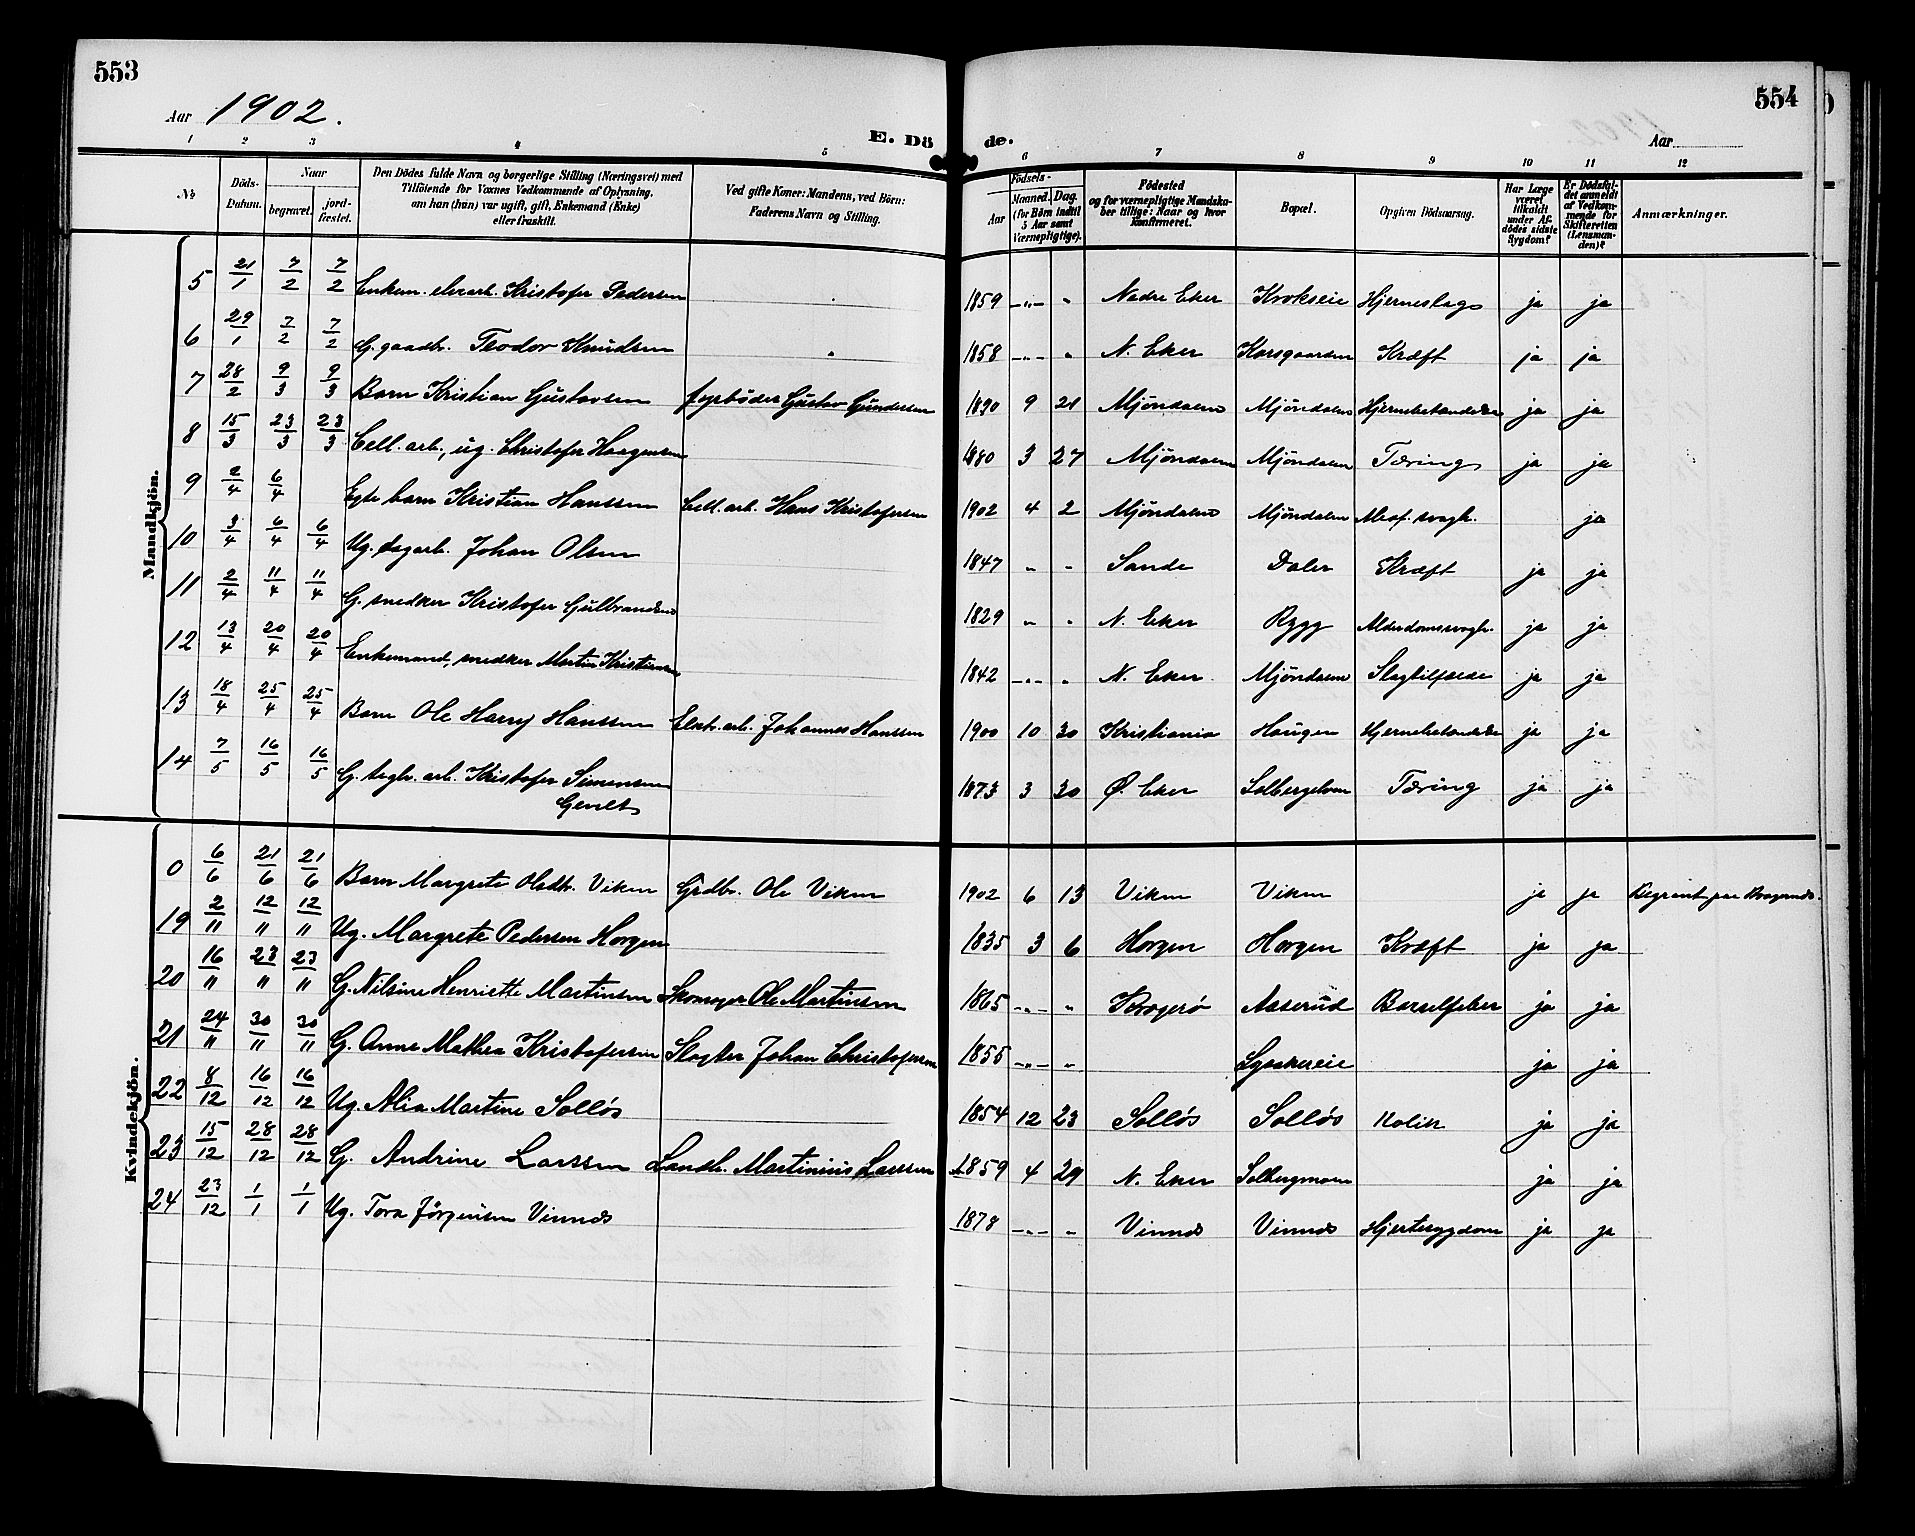 553
554
Aar 1902.
Aar
E. Döde.
1 2 3 4 5 6 7 8 9 10 11 12
No.
Döds-Datum.
Naar
begravet.
jord-fæstet.
Den Dödes fulde Navn og borgerlige Stilling (Næringsvei) med
Tilföiende for Voxnes Vedkommende af Oplysning,
om han (hun) var ugift, gift, Enkemand (Enke)
eller fraskilt.
Ved gifte Koner: Mandens, ved Börn:
Faderens Navn og Stilling.
Födsels-
Aar
Maaned. Dag.
(for Börn indtil
5 Aar samt
Værnepligtige).
Födested
og for værnepligtige Mandska-
ber tillige: Naar og hvor
konfirmeret.
Bopæl.
Opgiven Dödsaarsag.
Har Læge
været
tilkaldt
under Af-
dödes sidste
Sygdom?
Er Dödsfal-
det anmeldt
af Vedkom-
mende for
Skifteretten
(Lensman-
den)?
Anmærkninger.
Mandkjön.
5 21/1 7/2 7/2 Enkem. elvearb. Kristofer Pedersen 1859 -"- " Nedre Eker Krokseie Hjerneslag ja ja
6 29/1 7/2 7/2 G. gaardb. Teodor Knudsen 1858 -"- " N. Eker Korsgaarden Kræft ja ja
7 28/2 9/3 9/3 Barn Kristian Gustavsen fyrbøder Gustav Gundersen 1890 9 21 Mjøndalen Mjøndalen Hjernebetændelse ja ja
8 15/3 23/3 23/3 Cell. arb., ug. Christofer Haagensen 1880 3 27 Mjøndalen Mjøndalen Tæring ja ja
9 2/4 6/4 Egte barn Kristian Hanssen Cell. arb. Hans Kristofersen 1902 4 2 Mjøndalen Mjøndalen Medf. svagh. ja
10 3/4 6/4 6/4 Ug. dagarb. Johan Olsen 1847 " " Sande Daler Kræft ja ja
11 2/4 11/4 11/4 G. snedker Kristofer Gulbrandsen 1829 " " N. Eker Rygg Alderdomssvagh. ja ja
12 13/4 20/4 20/4 Enkemand, snedker Martin Kristiansen 1842 -"- " N. Eker Mjøndalen Slagtilfælde ja ja
13 18/4 25/4 25/4 Barn Ole Harry Hanssen Elektr. arb. Johannes Hanssen 1900 10 30 Kristiania Haugen Hjernebetændelse ja ja
14 7/5 16/5 16/5 G. teglv. arb. Kristofer Simensen 1873 3 30 Ø. Eker Solbergelven Tæring ja ja
Kvindekjön.
0 6/6 21/6 21/6 Barn Margrete Olsdtr. Viken Grdbr. Ole Viken 1902 6 13 Viken Viken ja ja
19 2/11 12/11 12/11 Ug. Margrete Pedersen Horgen 1835 3 6 Horgen Horgen Kræft ja ja
20 16/11 23/11 23/11 G. Nilsine Henriette Martinsen Skomager Ole Martinsen 1865 -"- " Kragerø Aaserud Barselfeber ja ja
21 24/11 30/11 30/11 G. Anne Mathea Kristofersen Slagter Johan Christofersen 1855 -"- " ja ja
22 8/12 16/12 16/12 Ug. Alia Martine Solløs 1854 12 23 Solløs Solløs Kolik ja ja
23 15/12 28/12 28/12 G. Andrine Larssen Landh. Martinius Larssen 1859 4 29 N. Eker Solbergmoen ja ja
24 23/12 1/1 1/1 Ug. Tora Jørgensen Vinnes 1878 -"- " Vinnes Vinnes Hjertesygdom ja ja